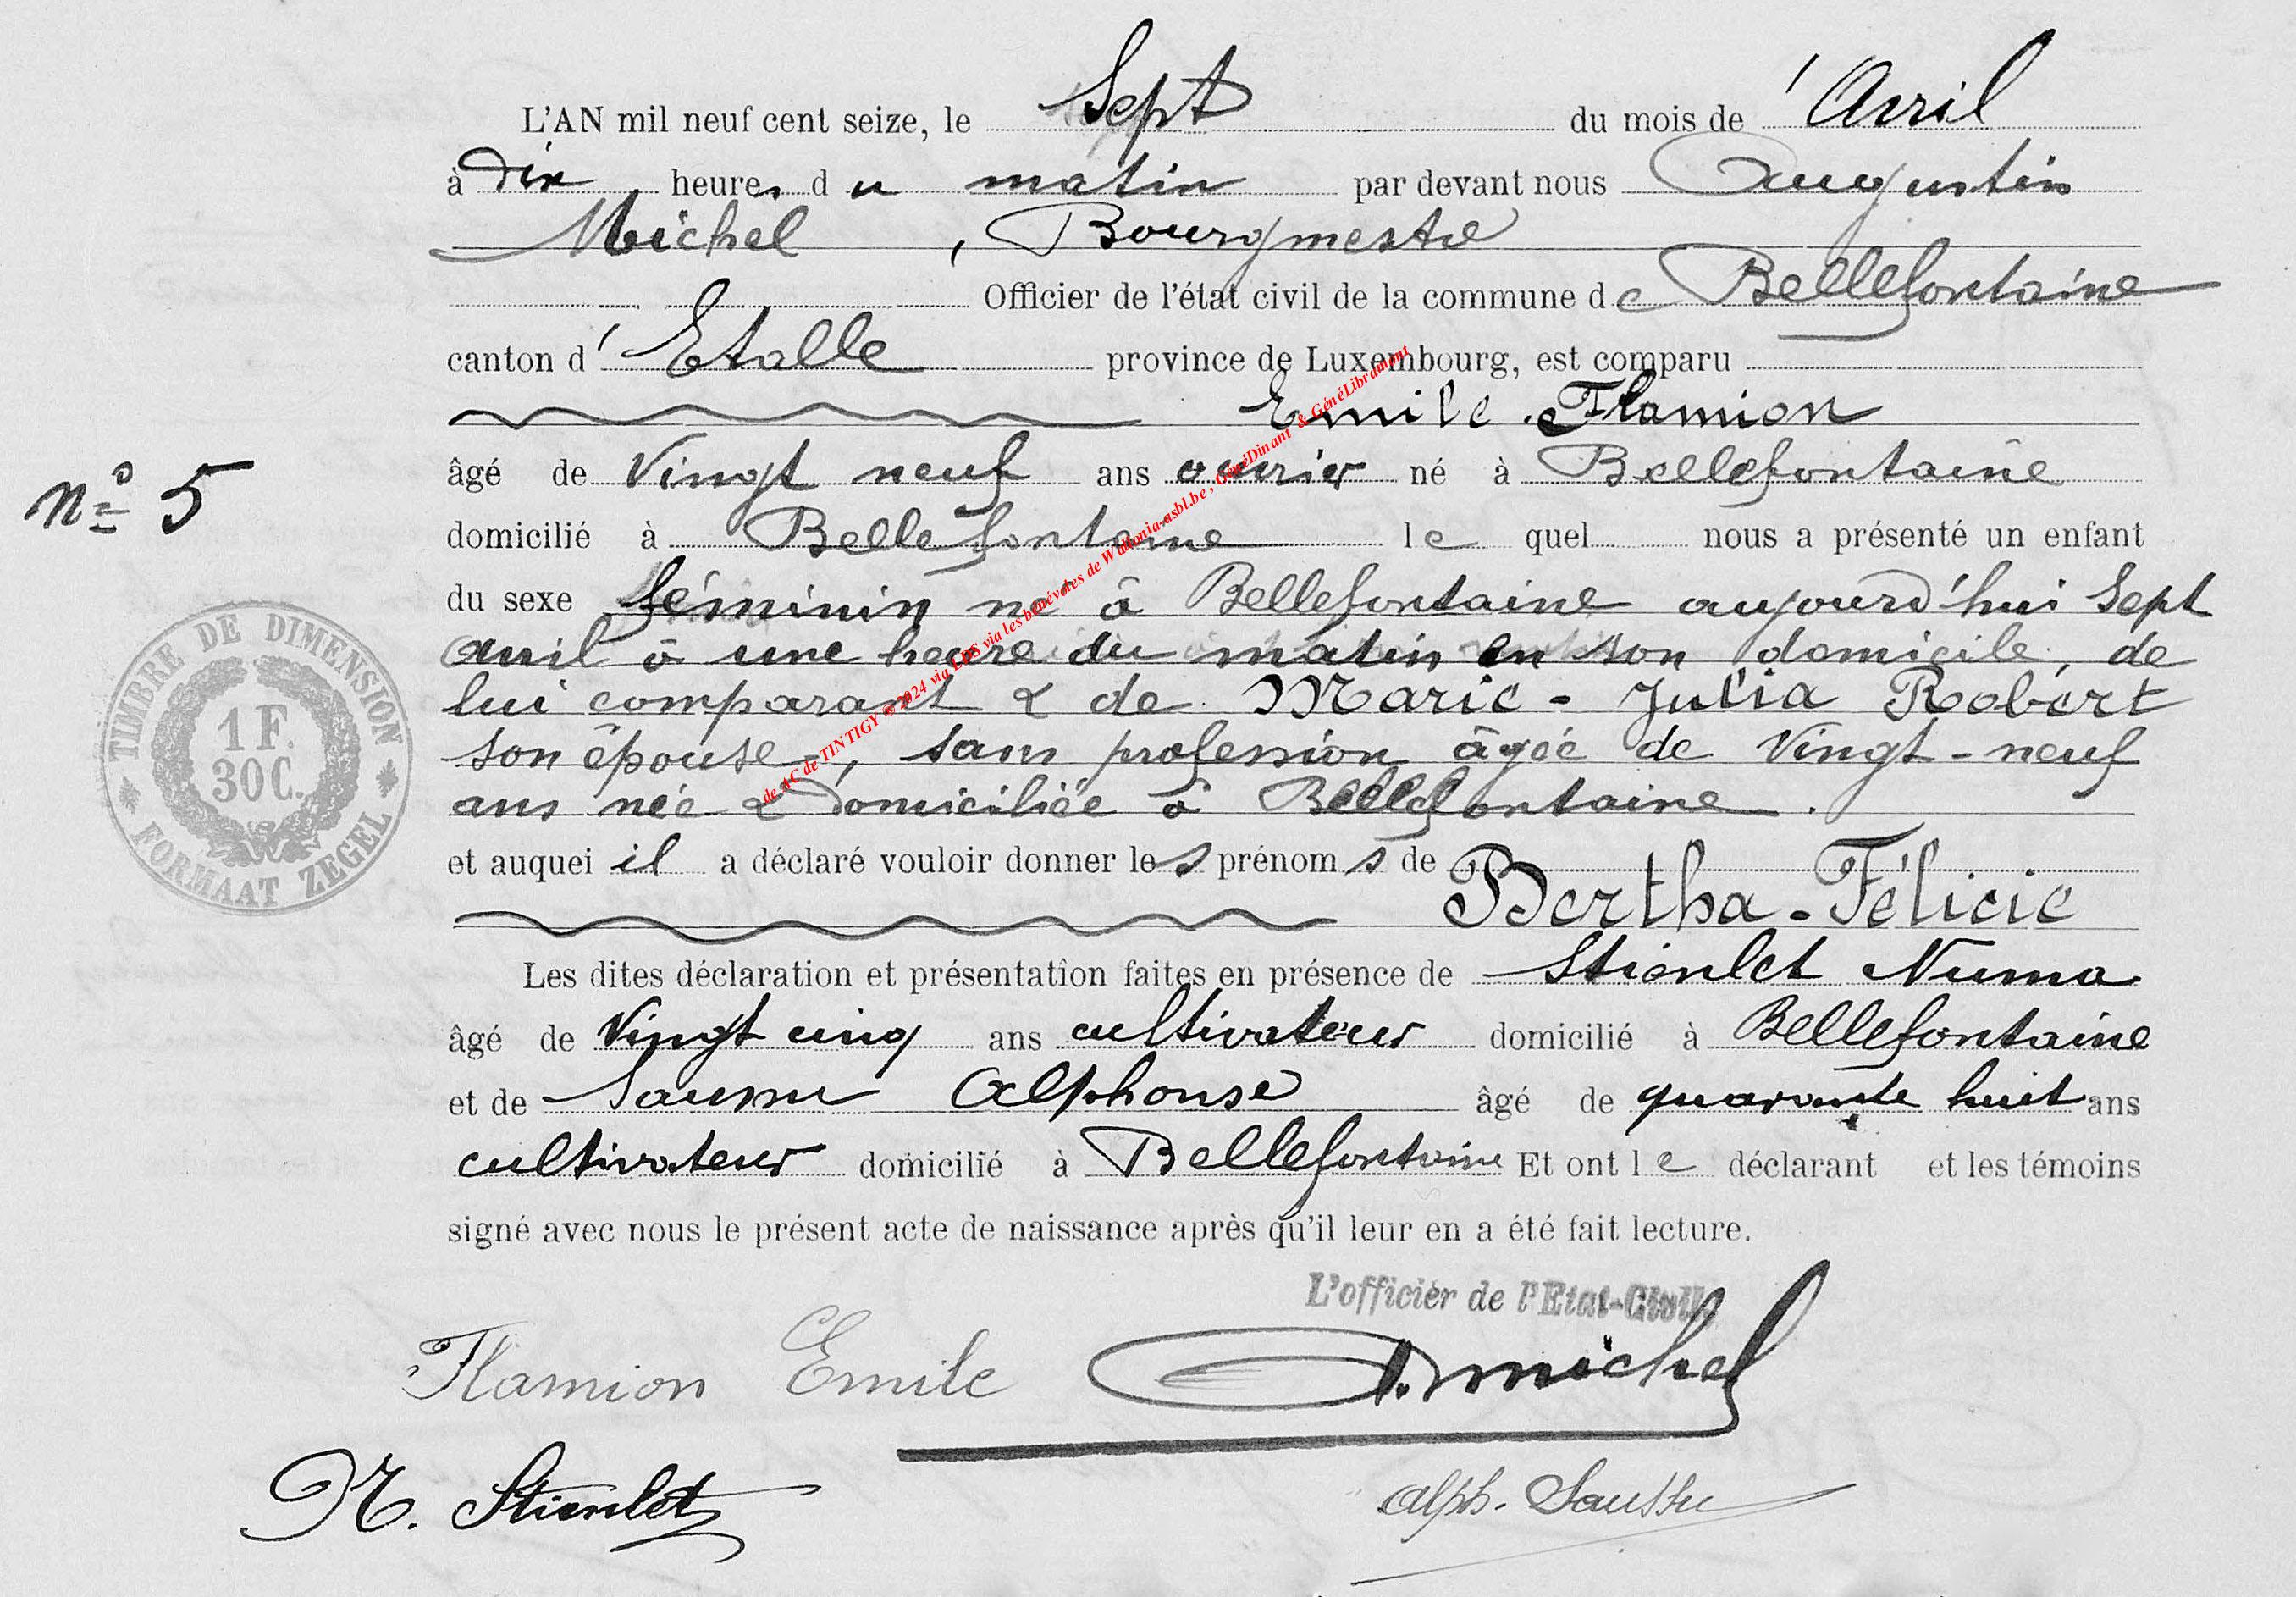 L'AN mil neuf cent seize, le Sept du mois d'e Avril
à dix heures du matin par devant nous Augustin
Michel, Bourgmestre
Officier de l'état civil de la commune de Bellefontaine
canton d'Etalle province de Luxembourg, est comparu
Emile Flamion
âgé de Vingt neuf ans ouvrier né à Bellefontaine
nº 5
domicilié à Bellefontaine lequel nous a présenté un enfant
du sexe féminin né à Bellefontaine aujourd'hui Sept
avril à une heure du matin en son domicile, de
lui comparant & de Marie-Julia Robert
son épouse, sans profession âgée de Vingt-neuf
ans née & domiciliée à Bellefontaine.
et auquel il a déclaré vouloir donner les prénoms de
Bertha-Félicie
Les dites déclaration et présentation faites en présence de Stienlet Numa
âgé de Vingt cinq ans cultivateur domicilié à Bellefontaine
et de Saussu Alphonse âgé de quarante huit ans
cultivateur domicilié à Bellefontaine Et ont le déclarant et les témoins
signé avec nous le présent acte de naissance après qu'il leur en a été fait lecture.
TIMBRE DE DIMENSION
1 F.
30 C.
FORMAAT ZEGEL
de AC de TINTIGY © 2024 via LDS via les bénévoles de Wallonia-asbl.be, GénéDinant & GénéLibramont
L'officier de l'Etat-Civil,
Flamion Emile A. Michel
N. Stienlet Alph. Saussu